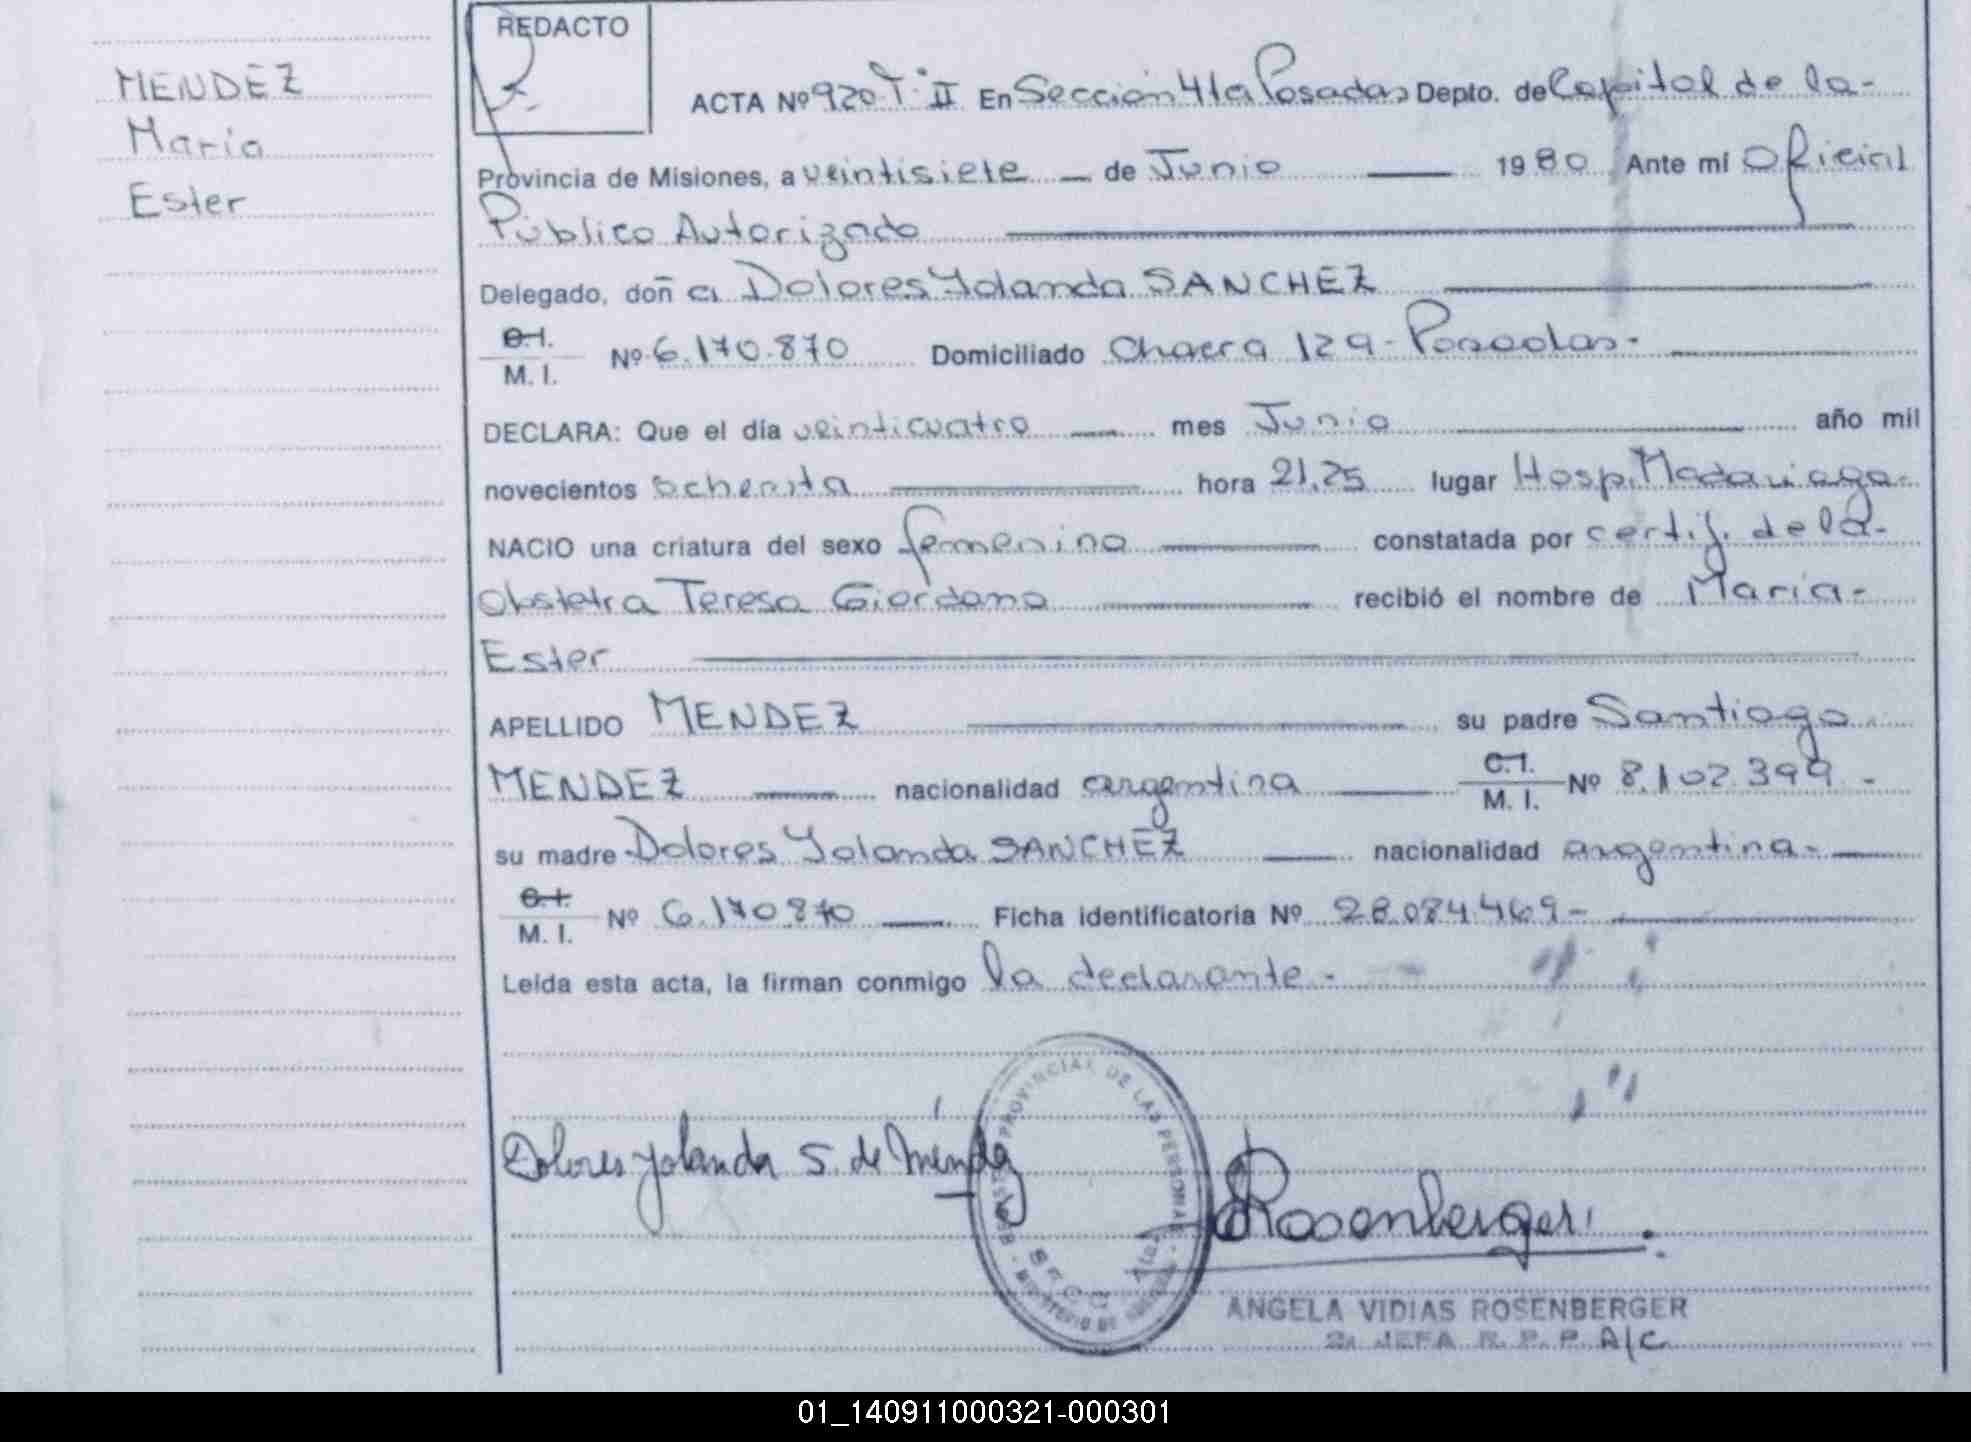 REDACTO
MENDEZ
María
Ester
ACTA Nº 920 T·II En Sección 4ta Posadas Depto. de Capital de la-
Provincia de Misiones, a veintisiete — de Junio — 1980 Ante mí Oficial
Público Autorizado
Delegado, doña Dolores Yolanda SANCHEZ
C.I.
M. I. Nº 6.170.870 Domiciliado Chacra 129 - Posadas-
DECLARA: Que el día veinticuatro — mes Junio — año mil
novecientos ochenta — hora 21,25 lugar Hosp. Madariaga-
NACIO una criatura del sexo femenino — constatada por certif. de la-
obstetra Teresa Giordano — recibió el nombre de María-
Ester
APELLIDO MENDEZ — su padre Santiago
MENDEZ — nacionalidad argentina — C.I.
M. I. Nº 8.102.399 -
su madre Dolores Yolanda SANCHEZ — nacionalidad argentina-
C.I.
M. I. Nº 6.170.870 — Ficha identificatoria Nº 28.084.469-
Leída esta acta, la firman conmigo la declarante-
Dolores Yolanda S. de Méndez
PROVINCIAL DE LAS PERSONAS
SECC 4ta
Rosenberger
ANGELA VIDIAS ROSENBERGER
2a JEFA R. P. P. A/C
01_140911000321-000301